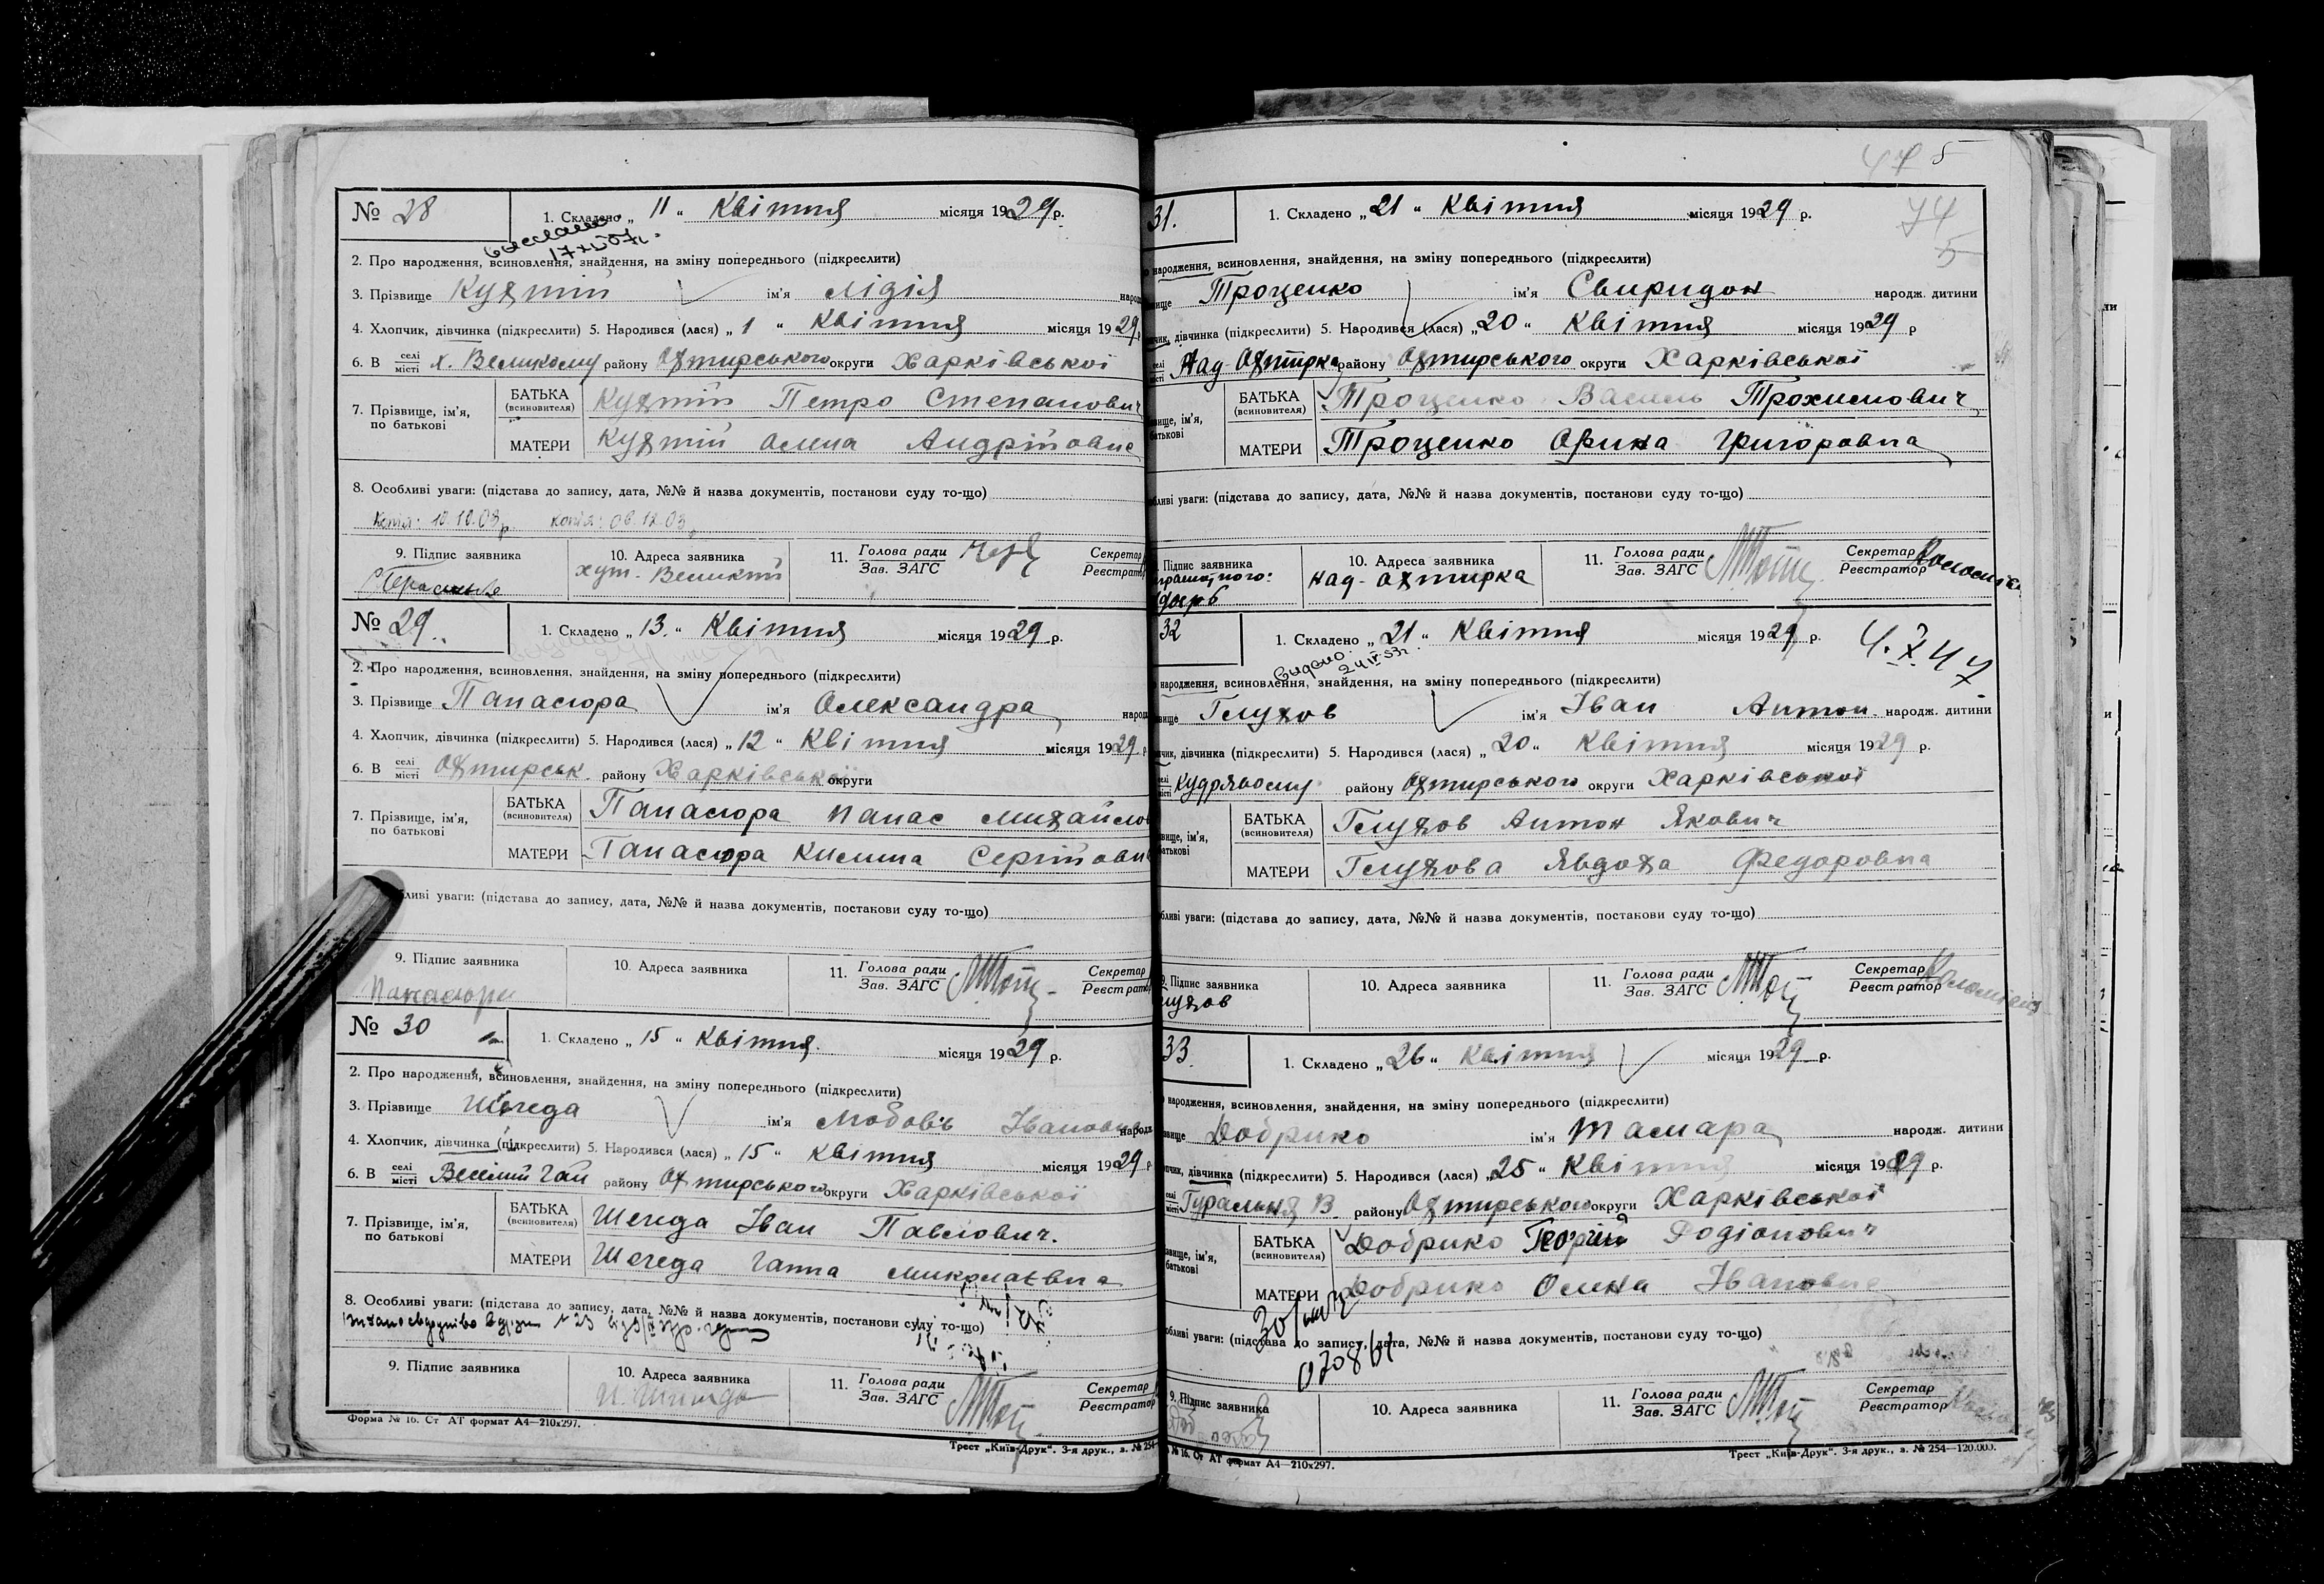 № 28
1. Складено „ 11 “ Квітня місяця 1929 р.
2. Про народження, всиновлення, знайдення, на зміну попереднього (підкреслити)
3. Прізвище Кухтій ім'я Лідія народ
4. Хлопчик, дівчинка (підкреслити) 5. Народився (лася) „ 1 “ Квітня місяця 1929 р
6. В селі місті х. Великому району Охтирського округи Харківської
7. Прізвище, ім'я, по батькові
БАТЬКА (всиновителя) Кухтій Петро Степанович
МАТЕРИ Кухтій Олена Андрійовна
8. Особливі уваги: (підстава до запису, дата, №№ й назва документів, постанови суду то-що)
Копія: 10.10.03 р. копія: 08.12.03
9. Підпис заявника
10. Адреса заявника
хут. Великий
11. Голова ради Зав. ЗАГС
Секретар Реєстратор
№ 29.
1. Складено „ 13. “ Квітня місяця 1929 р.
2. Про народження, всиновлення, знайдення, на зміну попереднього (підкреслити)
3. Прізвище Панасюра ім'я Олександра народ
4. Хлопчик, дівчинка (підкреслити) 5. Народився (лася) „ 12 “ Квітня місяця 1929 р
6. В селі місті Охтирськ. району Харківської округи
7. Прізвище, ім'я, по батькові
БАТЬКА (всиновителя) Панасюра Панас Михайлов
МАТЕРИ Панасюра Килина Сергійовн
ливі уваги: (підстава до запису, дата, №№ й назва документів, постакови суду то-що)
9. Підпис заявника
Панасюра
10. Адреса заявника
11. Голова ради Зав. ЗАГС
Секретар Реєстратор
№ 30
1. Складено „ 15 “ Квітня. місяця 1929 р.
2. Про народження, всиновлення, знайдення, на зміну попереднього (підкреслити)
3. Прізвище Шегеда ім'я Любовъ Івановна народ
4. Хлопчик, дівчинка (підкреслити) 5. Народився (лася) „ 15 “ Квітня місяця 1929 р
6. В селі місті Веселий Гай району Охтирського округи Харківської
7. Прізвище, ім'я, по батькові
БАТЬКА (всиновителя) Шегеда Іван Павлович.
МАТЕРИ Шегеда Ганна Миколаєвна
8. Особливі уваги: (підстава до запису, дата, №№ й назва документів, постанови суду то-що)
9. Підпис заявника
10. Адреса заявника
11. Голова ради Зав. ЗАГС
Секретар Реєстратор
Форма № 16. Ст АТ формат А4—210х297.
Трест „Київ-Друк“. 3-я друк., з. № 254
31.
1. Складено „ 21 “ Квітня місяця 1929 р.
74
5
народження, всиновлення, знайдення, на зміну попереднього (підкреслити)
вище Троценко ім'я Свиридон народж. дитини
чик, дівчинка (підкреслити) 5. Народився (лася) „ 20 “ Квітня місяця 1929 р
селі місті Над-Охтирка району Охтирського округи Харківської
вище, ім'я, батькові
БАТЬКА (всиновителя) Троценко Василь Трохимович
МАТЕРИ Троценко Орина Григоровна
бливі уваги: (підстава до запису, дата, №№ й назва документів, постанови суду то-що)
Підпис заявника
10. Адреса заявника
Над-Охтирка
11. Голова ради Зав. ЗАГС
Секретар Реєстратор Коломієць
32
1. Складено „ 21 “ Квітня місяця 1929 р.
4.X.47
Видано. 24 IV 53 р.
народження, всиновлення, знайдення, на зміну попереднього (підкреслити)
вище Глухов ім'я Іван Антон народж. дитини
чик, дівчинка (підкреслити) 5. Народився (лася) „ 20 “ Квітня місяця 1929 р.
селі місті Кудрявому району Охтирського округи Харківської
вище, ім'я, батькові
БАТЬКА (всиновителя) Глухов Антон Якович
МАТЕРИ Глухова Явдоха Федоровна
бливі уваги: (підстава до запису, дата, №№ й назва документів, постанови суду то-що)
9. Підпис заявника
лухов
10. Адреса заявника
11. Голова ради Зав. ЗАГС
Секретар Реєстратор Коломієць
33.
1. Складено „ 26 “ Квітня місяця 1929 р.
народження, всиновлення, знайдення, на зміну попереднього (підкреслити)
вище Добрико ім'я Тамара народж. дитини
чик, дівчинка (підкреслити) 5. Народився (лася) „ 25 “ Квітня місяця 1929 р.
селі місті Гуральня В району Охтирського округи Харківської
вище, ім'я, батькові
БАТЬКА (всиновителя) Добрико Георгій Родіонович
МАТЕРИ Добрико Олена Івановна
бливі уваги: (підстава до запису, дата, №№ й назва документів, постанови суду то-що)
9. Підпис заявника
10. Адреса заявника
11. Голова ради Зав. ЗАГС
Секретар Реєстратор
№ 16. Ст АТ формат А4—210х297.
Трест „Київ-Друк“. 3-я друк., з. № 254—120.000.